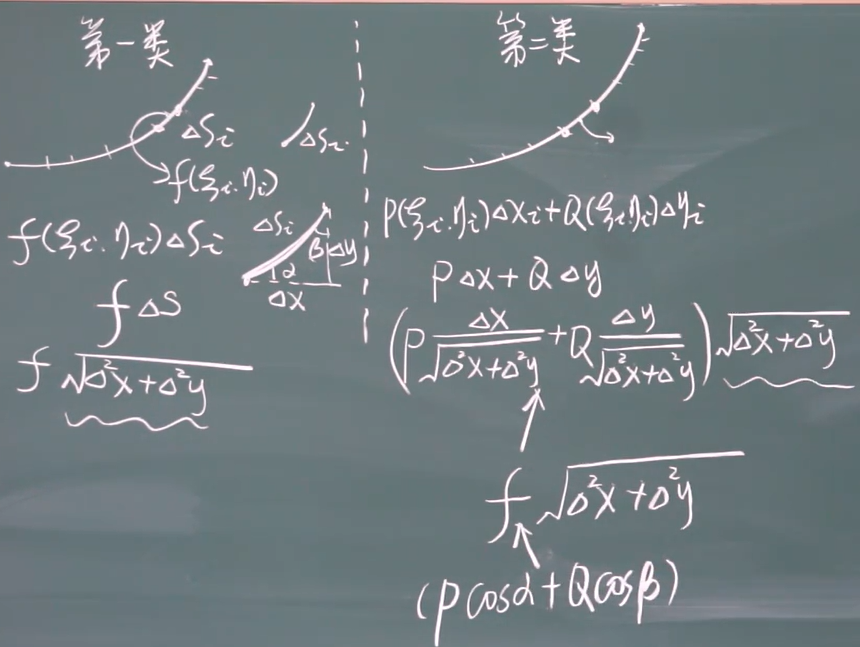 第一类
ΔSᵢ
ΔSᵢ
f(ξᵢ.ηᵢ)
f(ξᵢ.ηᵢ)ΔSᵢ
ΔSᵢ
β Δy
α
Δx
fΔS
f√(Δ²x+Δ²y)
第二类
P(ξᵢ.ηᵢ)Δxᵢ+Q(ξᵢ.ηᵢ)Δyᵢ
PΔx+QΔy
(P Δx/√(Δ²x+Δ²y) +Q Δy/√(Δ²x+Δ²y))√(Δ²x+Δ²y)
f√(Δ²x+Δ²y)
(Pcosα+Qcosβ)